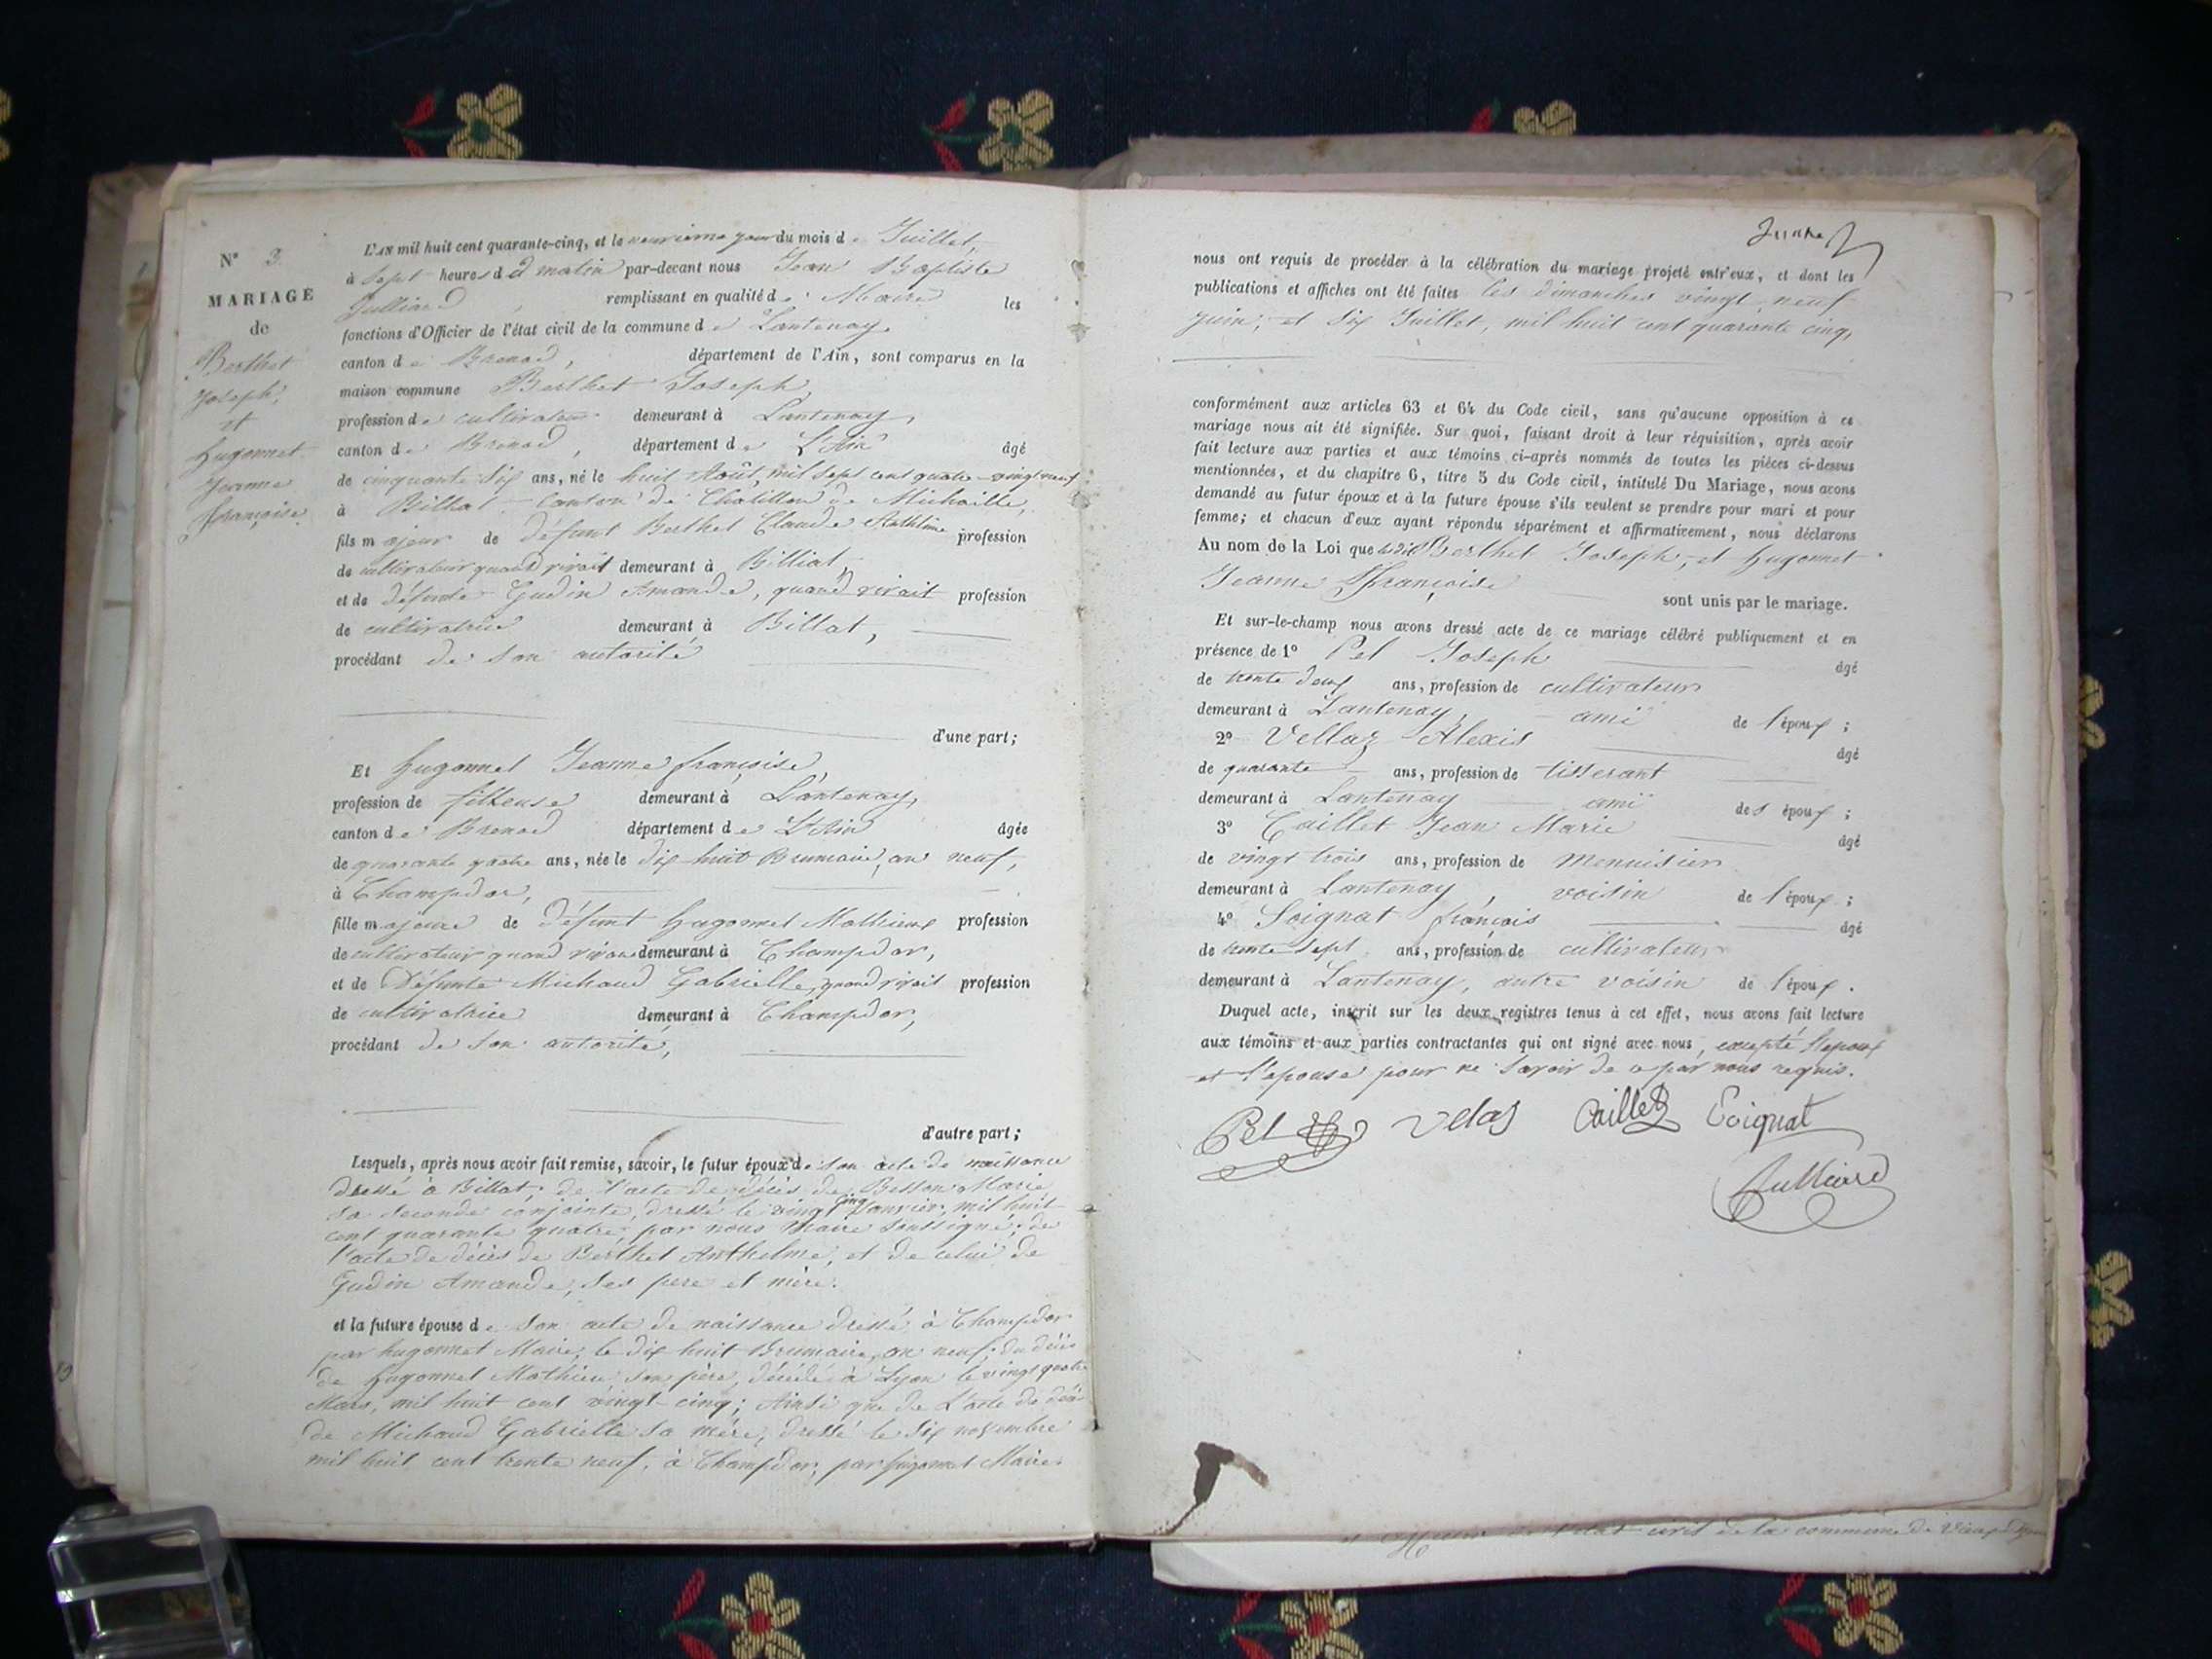 N° 3.
MARIAGE
de
Berthet
Joseph,
et
hugonnet
Jeanne
françoise.
L'AN mil huit cent quarante-cinq, et le neuvieme jour du mois de Juillet,
à sept heures du matin par-devant nous Jean Baptiste
Julliard remplissant en qualité de Maire les
fonctions d'Officier de l'état civil de la commune de Lantenay,
canton de Brenod, département de l'Ain, sont comparus en la
maison commune Berthet Joseph,
profession de cultivateur demeurant à Lantenay,
canton de Brenod, département de L'Ain âgé
de cinquante six ans, né le huit Août, mil sept cent quatre-vingt neuf
à Billiat canton de Chatillon de Michaille,
fils majeur de défunt Berthet Claude Anthelme profession
de cultivateur quand vivait demeurant à Billiat,
et de défunte Gudin Amande, quand vivait profession
de cultivatrice demeurant à Billat,
procédant de son autorité
d'une part;
Et hugonnet Jeanne françoise,
profession de filleuse demeurant à Lantenay,
canton de Brenod département de L'Ain âgée
de quarante quatre ans, née le dix huit Brumaire, an neuf,
à Champdor,
fille majeure de défunt hugonnet Mathieu profession
de cultivateur quand vivait demeurant à Champdor,
et de Défunte Michaud Gabrielle, quand vivait profession
de cultivatrice demeurant à Champdor,
procédant de son autorité,
d'autre part;
Lesquels, après nous avoir fait remise, savoir, le futur époux de son acte de naissance
dressé à Billat; de l'acte de décès de Besson Marie
sa seconde conjointe, dressé le vingt cinq Janvier, mil huit
cent quarante quatre, par nous Maire soussigné; de
l'acte de décès de Berthet Anthelme, et de celui de
Gudin Amande, ses pere et mère.
et la future épouse de son acte de naissance dressé à Champdor
par hugonnet Maire, le dix huit Brumaire, an neuf; du décès
de Hugonnet Mathieu son père, décédé à Lyon le vingt quatre
Mars, mil huit cent vingt-cinq; Ainsi que de L'acte de décès
de Michaud Gabrielle sa mère, dressé le six novembre
mil huit cent trente neuf, à Champdor, par hugonnet Maire.
nous ont requis de procéder à la célébration du mariage projeté entr'eux, et dont les
publications et affiches ont été faites les dimanches vingt-neuf
juin, et six Juillet, mil huit cent quarante cinq,
conformément aux articles 63 et 64 du Code civil, sans qu'aucune opposition à ce
mariage nous ait été signifiée. Sur quoi, faisant droit à leur réquisition, après avoir
fait lecture aux parties et aux témoins ci-après nommés de toutes les pièces ci-dessus
mentionnées, et du chapitre 6, titre 5 du Code civil, intitulé Du Mariage, nous avons
demandé au futur époux et à la future épouse s'ils veulent se prendre pour mari et pour
femme; et chacun d'eux ayant répondu séparément et affirmativement, nous déclarons
Au nom de la Loi que ledit Berthet Joseph, et hugonnet
Jeanne françoise sont unis par le mariage.
Et sur-le-champ nous avons dressé acte de ce mariage célébré publiquement et en
présence de 1° Pel Joseph âgé
de trente deux ans, profession de cultivateur
demeurant à Lantenay, ami de l'époux;
2° Vellaz Alexis âgé
de quarante ans, profession de tisserant
demeurant à Lantenay ami des époux;
3° Caillet Jean Marie âgé
de vingt trois ans, profession de Menuisier
demeurant à Lantenay, voisin de l'époux;
4° Soignat françois âgé
de trente sept ans, profession de cultivateur
demeurant à Lantenay, autre voisin de l'époux.
Duquel acte, inscrit sur les deux registres tenus à cet effet, nous avons fait lecture
aux témoins et aux parties contractantes qui ont signé avec nous, excepté l'epoux
et l'epouse pour ne savoir de ce par nous requis.
Pel Velas Caillet Soignat
Julliard
l'état civil de la commune de